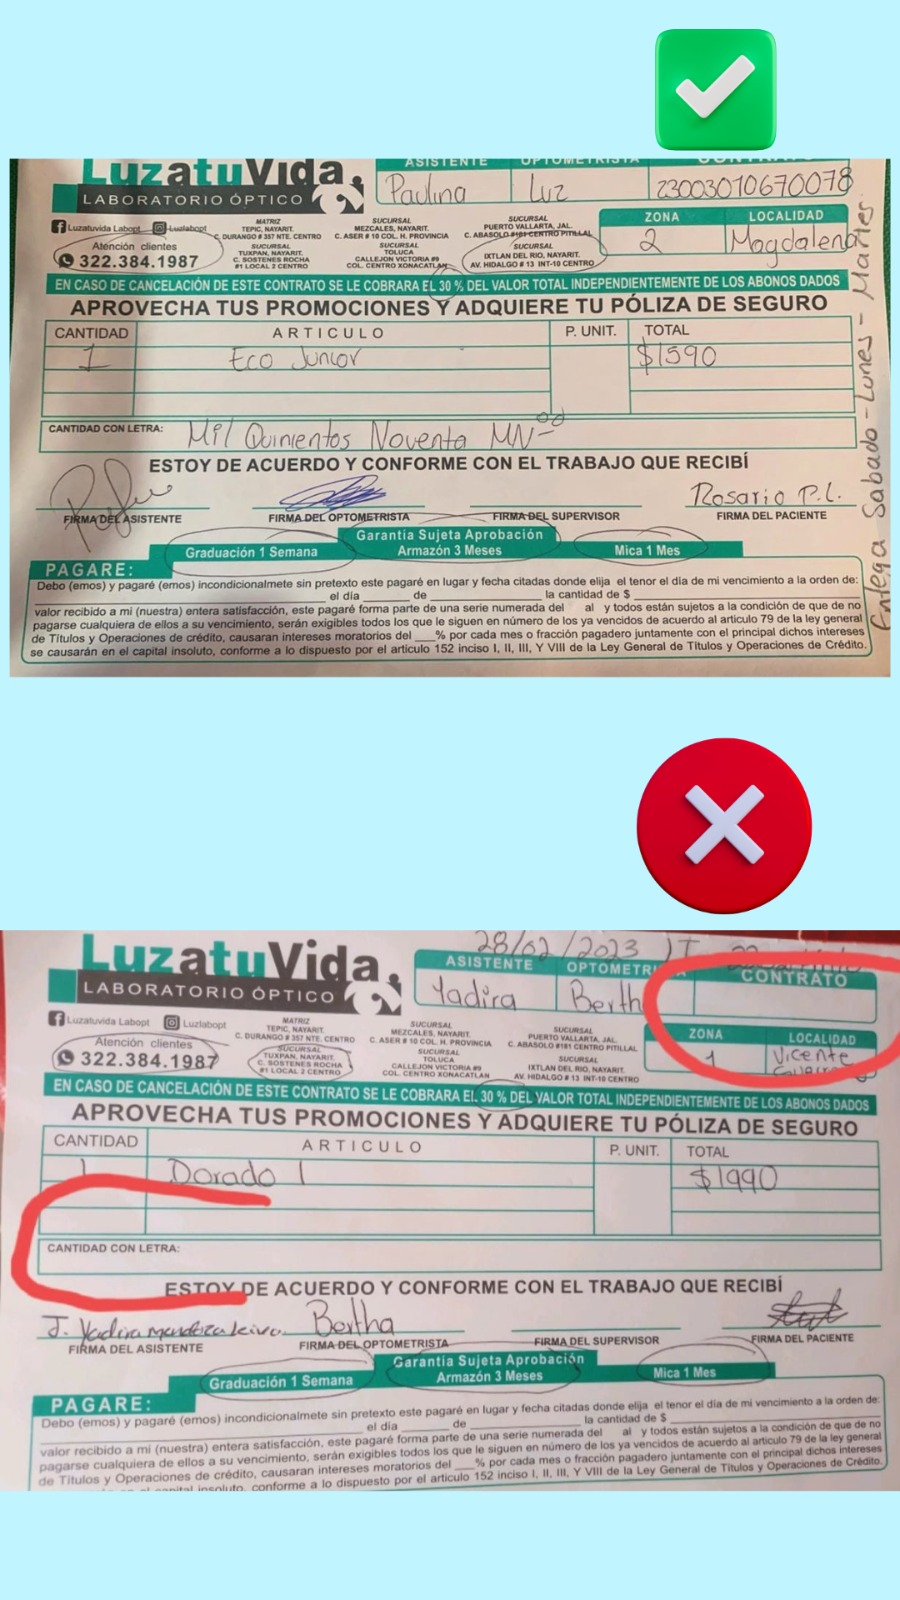 LuzatuVida.
LABORATORIO ÓPTICO
ASISTENTE OPTOMETRISTA CONTRATO
Paulina Luz 23003010670078
ZONA LOCALIDAD
2 Magdalena
Luzatuvida Labopt Luzlabopt
Atención clientes
322.384.1987
MATRIZ
TEPIC, NAYARIT.
C. DURANGO # 357 NTE. CENTRO
SUCURSAL
TUXPAN, NAYARIT.
C. SOSTENES ROCHA
#1 LOCAL 2 CENTRO
SUCURSAL
MEZCALES, NAYARIT.
C. ASER # 10 COL. H. PROVINCIA
SUCURSAL
TOLUCA
CALLEJON VICTORIA #9
COL. CENTRO XONACATLAN
SUCURSAL
PUERTO VALLARTA, JAL.
C. ABASOLO #181 CENTRO PITILLAL
SUCURSAL
IXTLAN DEL RIO, NAYARIT.
AV. HIDALGO # 13 INT-10 CENTRO
EN CASO DE CANCELACIÓN DE ESTE CONTRATO SE LE COBRARA EL 30 % DEL VALOR TOTAL INDEPENDIENTEMENTE DE LOS ABONOS DADOS
APROVECHA TUS PROMOCIONES Y ADQUIERE TU PÓLIZA DE SEGURO
CANTIDAD ARTICULO P. UNIT. TOTAL
1 Eco Junior $1590
CANTIDAD CON LETRA: Mil Quinientos Noventa MN
ESTOY DE ACUERDO Y CONFORME CON EL TRABAJO QUE RECIBÍ
Rosario P.L.
FIRMA DEL ASISTENTE FIRMA DEL OPTOMETRISTA FIRMA DEL SUPERVISOR FIRMA DEL PACIENTE
Graduación 1 Semana
Garantia Sujeta Aprobación
Armazón 3 Meses
Mica 1 Mes
PAGARE:
Debo (emos) y pagaré (emos) incondicionalmete sin pretexto este pagaré en lugar y fecha citadas donde elija el tenor el día de mi vencimiento a la orden de:
el día de la cantidad de $
valor recibido a mi (nuestra) entera satisfacción, este pagaré forma parte de una serie numerada del al y todos están sujetos a la condición de que de no
pagarse cualquiera de ellos a su vencimiento, serán exigibles todos los que le siguen en número de los ya vencidos de acuerdo al articulo 79 de la ley general
de Títulos y Operaciones de crédito, causaran intereses moratorios del ___% por cada mes o fracción pagadero juntamente con el principal dichos intereses
se causarán en el capital insoluto, conforme a lo dispuesto por el articulo 152 inciso I, II, III, Y VIII de la Ley General de Títulos y Operaciones de Crédito.
Entega Sabado - Lunes - Martes
28/02/2023
LuzatuVida.
LABORATORIO ÓPTICO
ASISTENTE OPTOMETRI CONTRATO
Yadira Berth
ZONA LOCALIDAD
1 Vicente
Luzatuvida Labopt Luzlabopt
Atención clientes
322.384.1987
MATRIZ
TEPIC, NAYARIT.
C. DURANGO # 357 NTE. CENTRO
SUCURSAL
TUXPAN, NAYARIT.
C. SOSTENES ROCHA
#1 LOCAL 2 CENTRO
SUCURSAL
MEZCALES, NAYARIT.
C. ASER # 10 COL. H. PROVINCIA
SUCURSAL
TOLUCA
CALLEJON VICTORIA #9
COL. CENTRO XONACATLAN
SUCURSAL
PUERTO VALLARTA, JAL.
C. ABASOLO #181 CENTRO PITILLAL
SUCURSAL
IXTLAN DEL RIO, NAYARIT.
AV. HIDALGO # 13 INT-10 CENTRO
EN CASO DE CANCELACIÓN DE ESTE CONTRATO SE LE COBRARA EL 30 % DEL VALOR TOTAL INDEPENDIENTEMENTE DE LOS ABONOS DADOS
APROVECHA TUS PROMOCIONES Y ADQUIERE TU PÓLIZA DE SEGURO
CANTIDAD ARTICULO P. UNIT. TOTAL
1 Dorado 1 $1990
CANTIDAD CON LETRA:
ESTOY DE ACUERDO Y CONFORME CON EL TRABAJO QUE RECIBÍ
J. Yadira Bertha
FIRMA DEL ASISTENTE FIRMA DEL OPTOMETRISTA FIRMA DEL SUPERVISOR FIRMA DEL PACIENTE
Graduación 1 Semana
Garantia Sujeta Aprobación
Armazón 3 Meses
Mica 1 Mes
PAGARE:
Debo (emos) y pagaré (emos) incondicionalmete sin pretexto este pagaré en lugar y fecha citadas donde elija el tenor el día de mi vencimiento a la orden de:
el día de la cantidad de $
valor recibido a mi (nuestra) entera satisfacción, este pagaré forma parte de una serie numerada del al y todos están sujetos a la condición de que de no
pagarse cualquiera de ellos a su vencimiento, serán exigibles todos los que le siguen en número de los ya vencidos de acuerdo al articulo 79 de la ley general
de Títulos y Operaciones de crédito, causaran intereses moratorios del ___% por cada mes o fracción pagadero juntamente con el principal dichos intereses
capital insoluto, conforme a lo dispuesto por el articulo 152 inciso I, II, III, Y VIII de la Ley General de Títulos y Operaciones de Crédito.